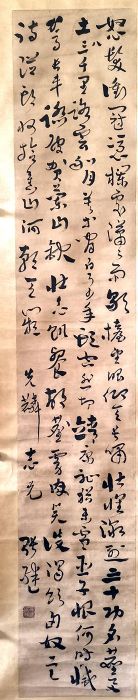 怒髮衝冠憑欄處瀟瀟雨歇擡望眼仰天長嘯壯懷激烈三十功名塵與
土八千里路雲和月莫等閒白了少年頭空悲切靖康恥猶未雪臣子恨何時滅
駕長車踏破賀蘭山缺壯志飢餐胡虜肉笑談渴飲匈奴血
待從頭收拾舊山河朝天闕 志光 張